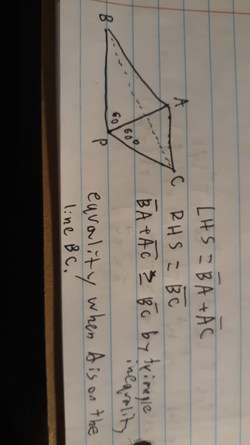 B
A
C
P
60
60°
LHS = B̅A̅ + A̅C̅
RHS = B̅C̅
B̅A̅ + A̅C̅ ≥ B̅C̅ by triangle
inequality
equality when A is on the
line BC.